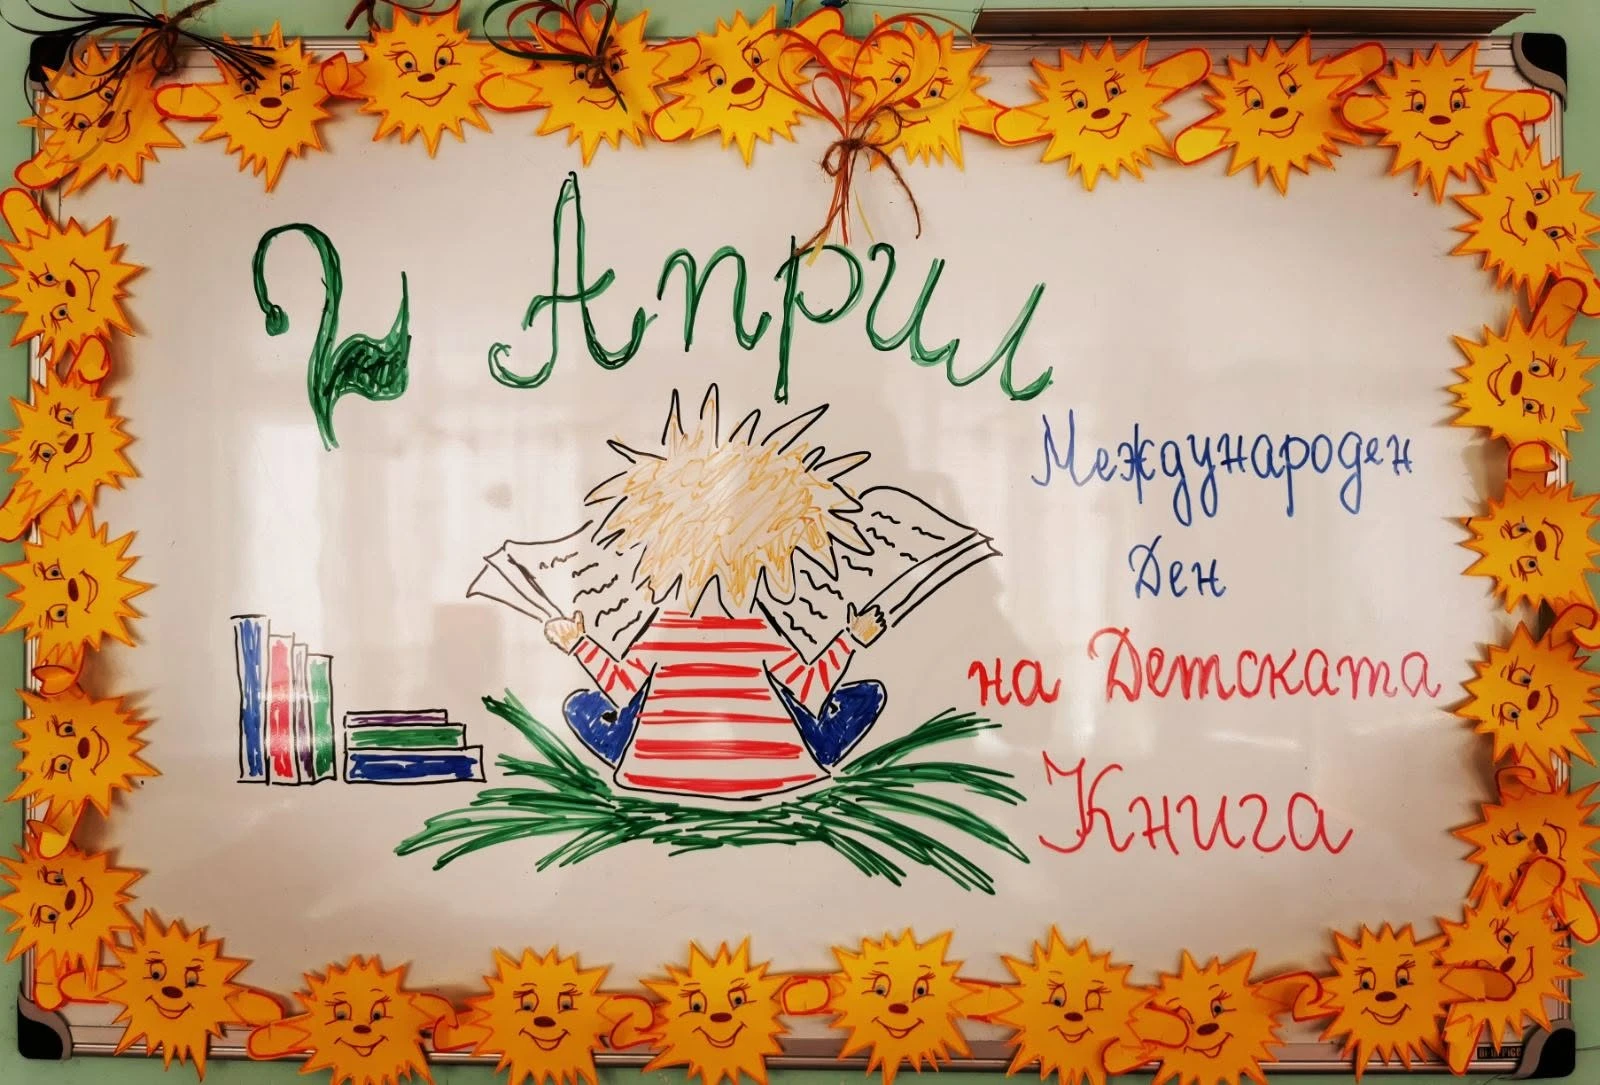 2 Април
Международен
Ден
на Детската
Книга